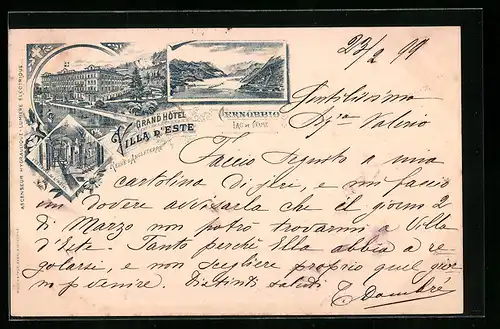 23/2 99
GRAND HÔTEL
VILLA D'ESTE
REINE D'ANGLETERRE
CERNOBBIO
LAC DE COME
ASCENSEUR HYDRAULIQUE - LUMIÈRE ÉLECTRIQUE
Gentilissimo
Valerio
Faccio seguito a mia
cartolina di jeri, e mi faccio
un dovere avvisarla che il giorno 2
di Marzo non potrò trovarmi a Villa
d'Este. Tanto perché Ella abbia a re
golarsi, e non scegliere proprio quel gior
no p venire. Distinti saluti